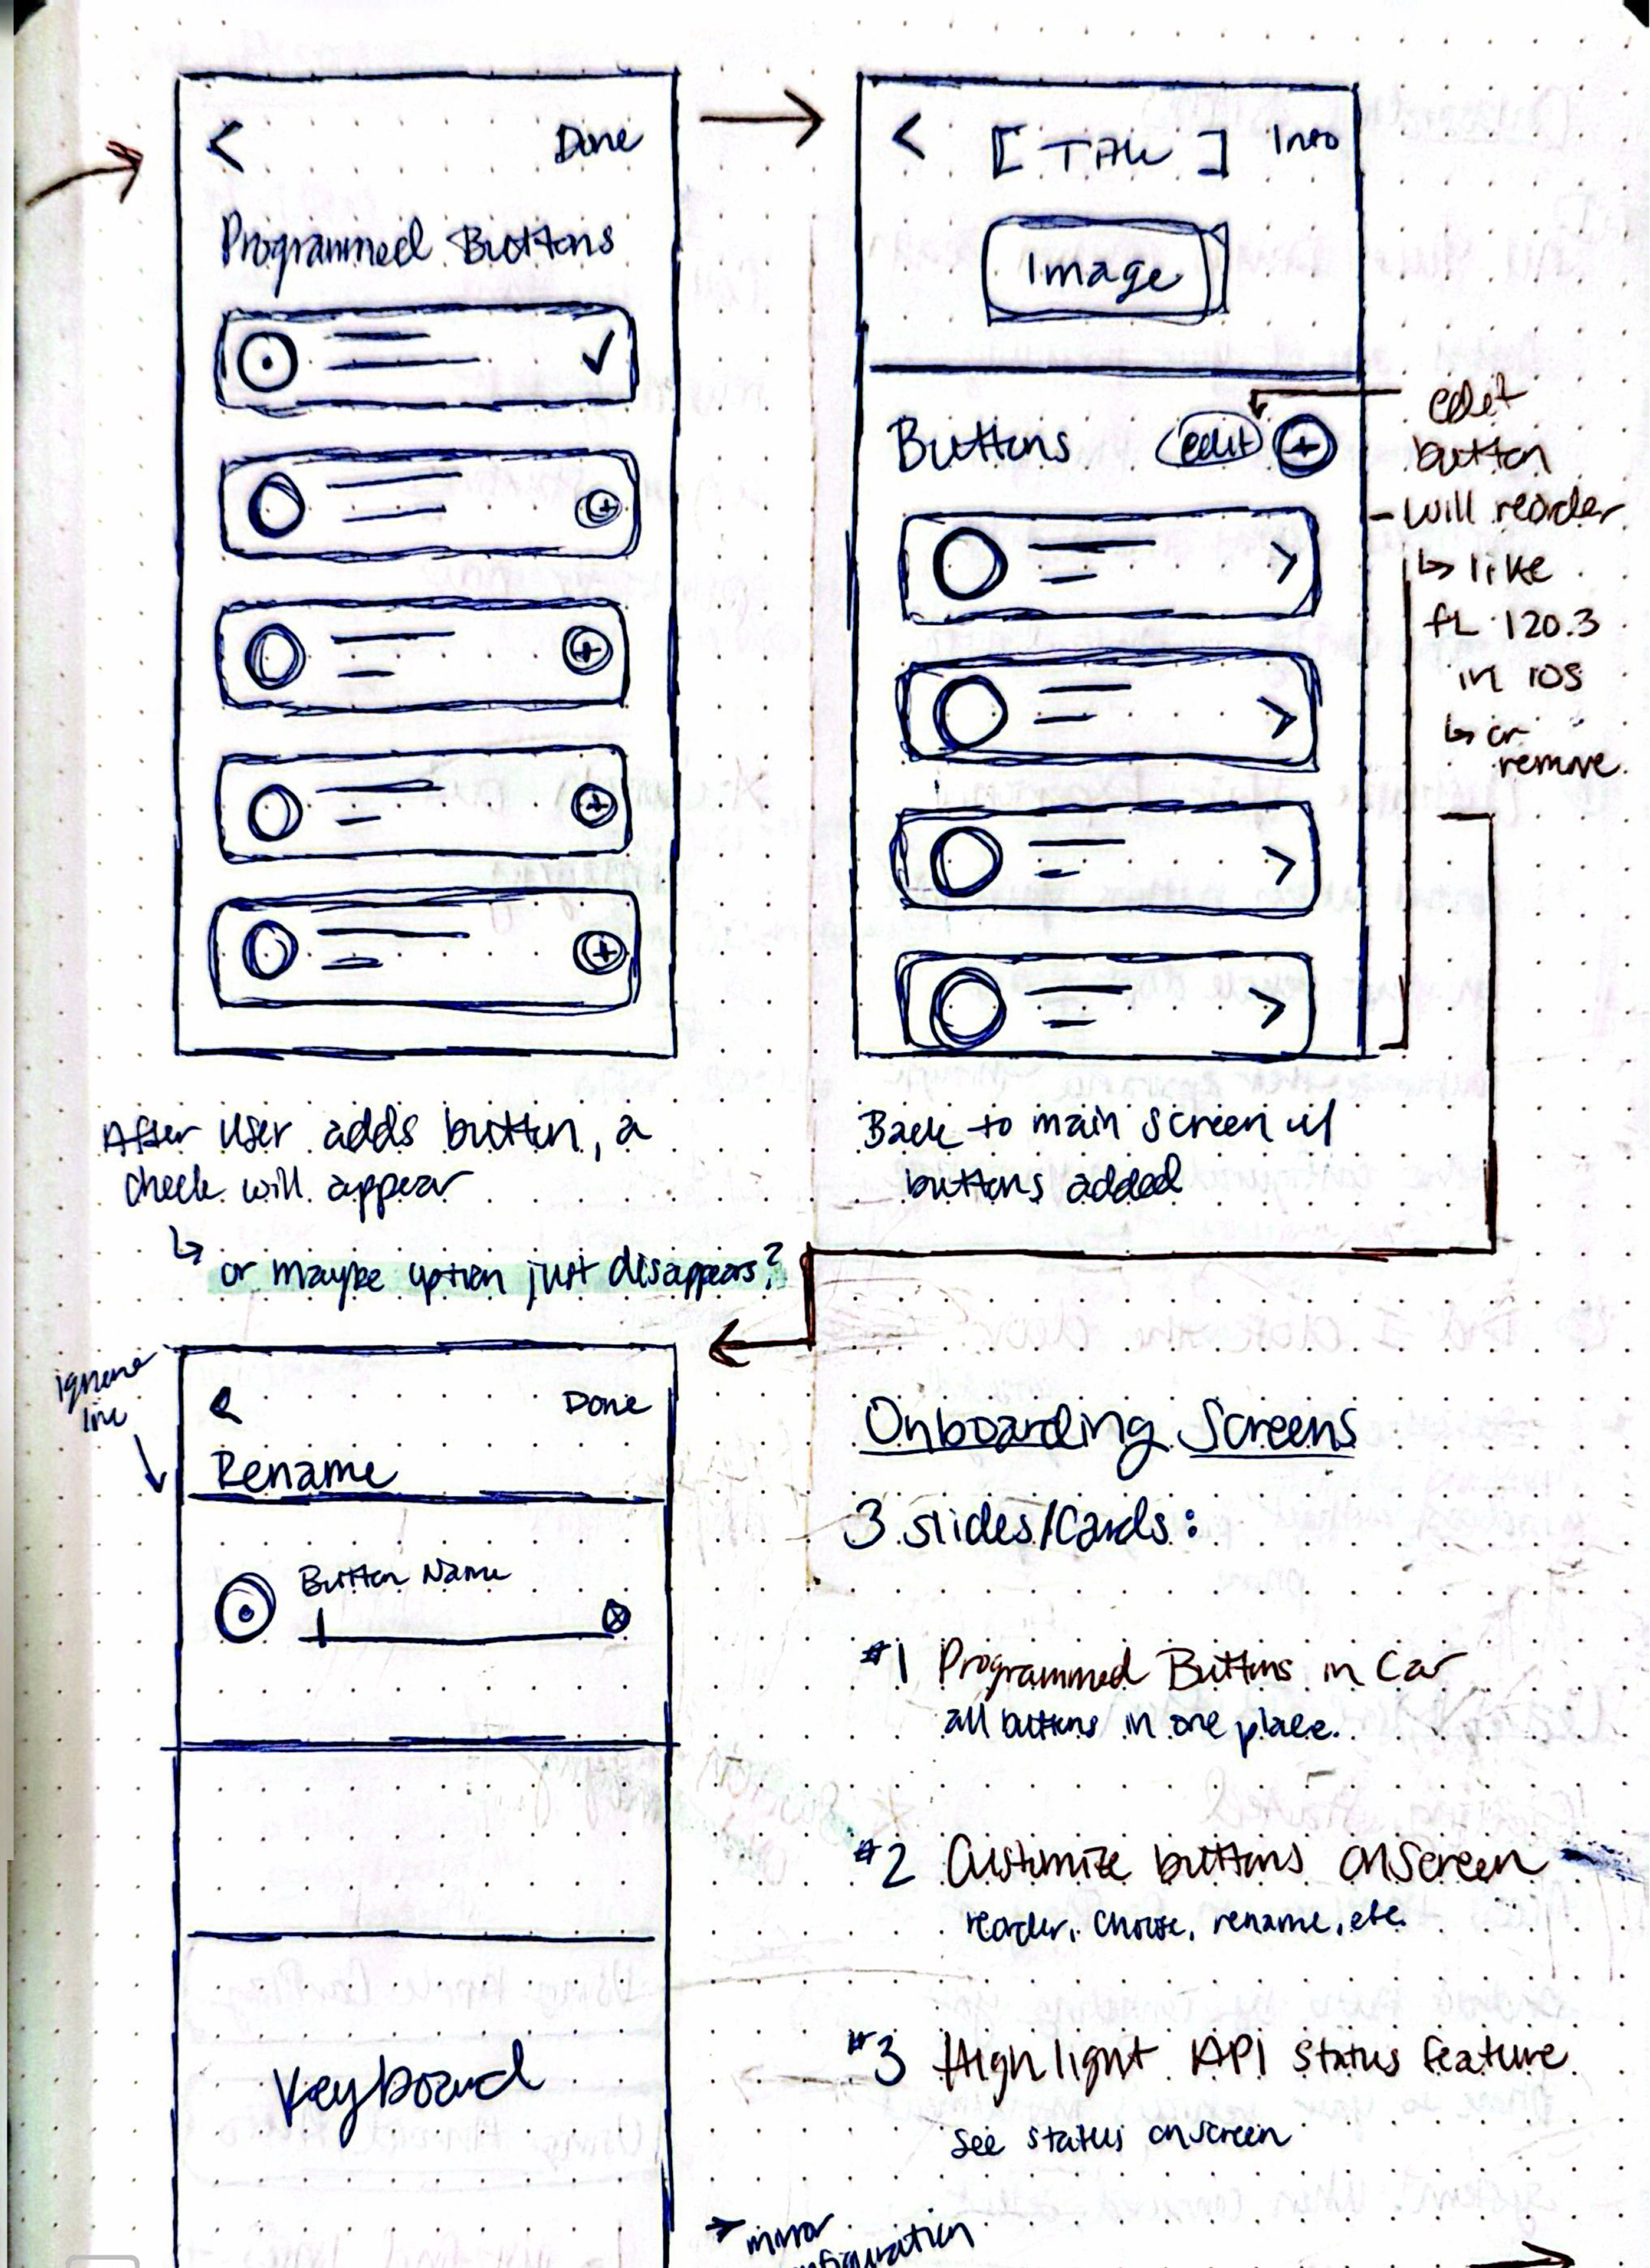 < Done
Programmed Buttons
After user adds button, a
check will appear
↳ or maybe option just disappears?
< [Title] Info
Image
Buttons edit +
edit
button
- will reorder
↳ like
FL 120.3
in iOS
↳ or
remove
Back to main screen w/
buttons added
ignore
line
< Done
Rename
Button Name
Keyboard
Onboarding Screens
3 slides/cards:
#1 Programmed Buttons in Car
all buttons in one place.
#2 Customize buttons onscreen
reorder, choose, rename, etc.
#3 Highlight API status feature
See status onscreen
→ mirror
configuration